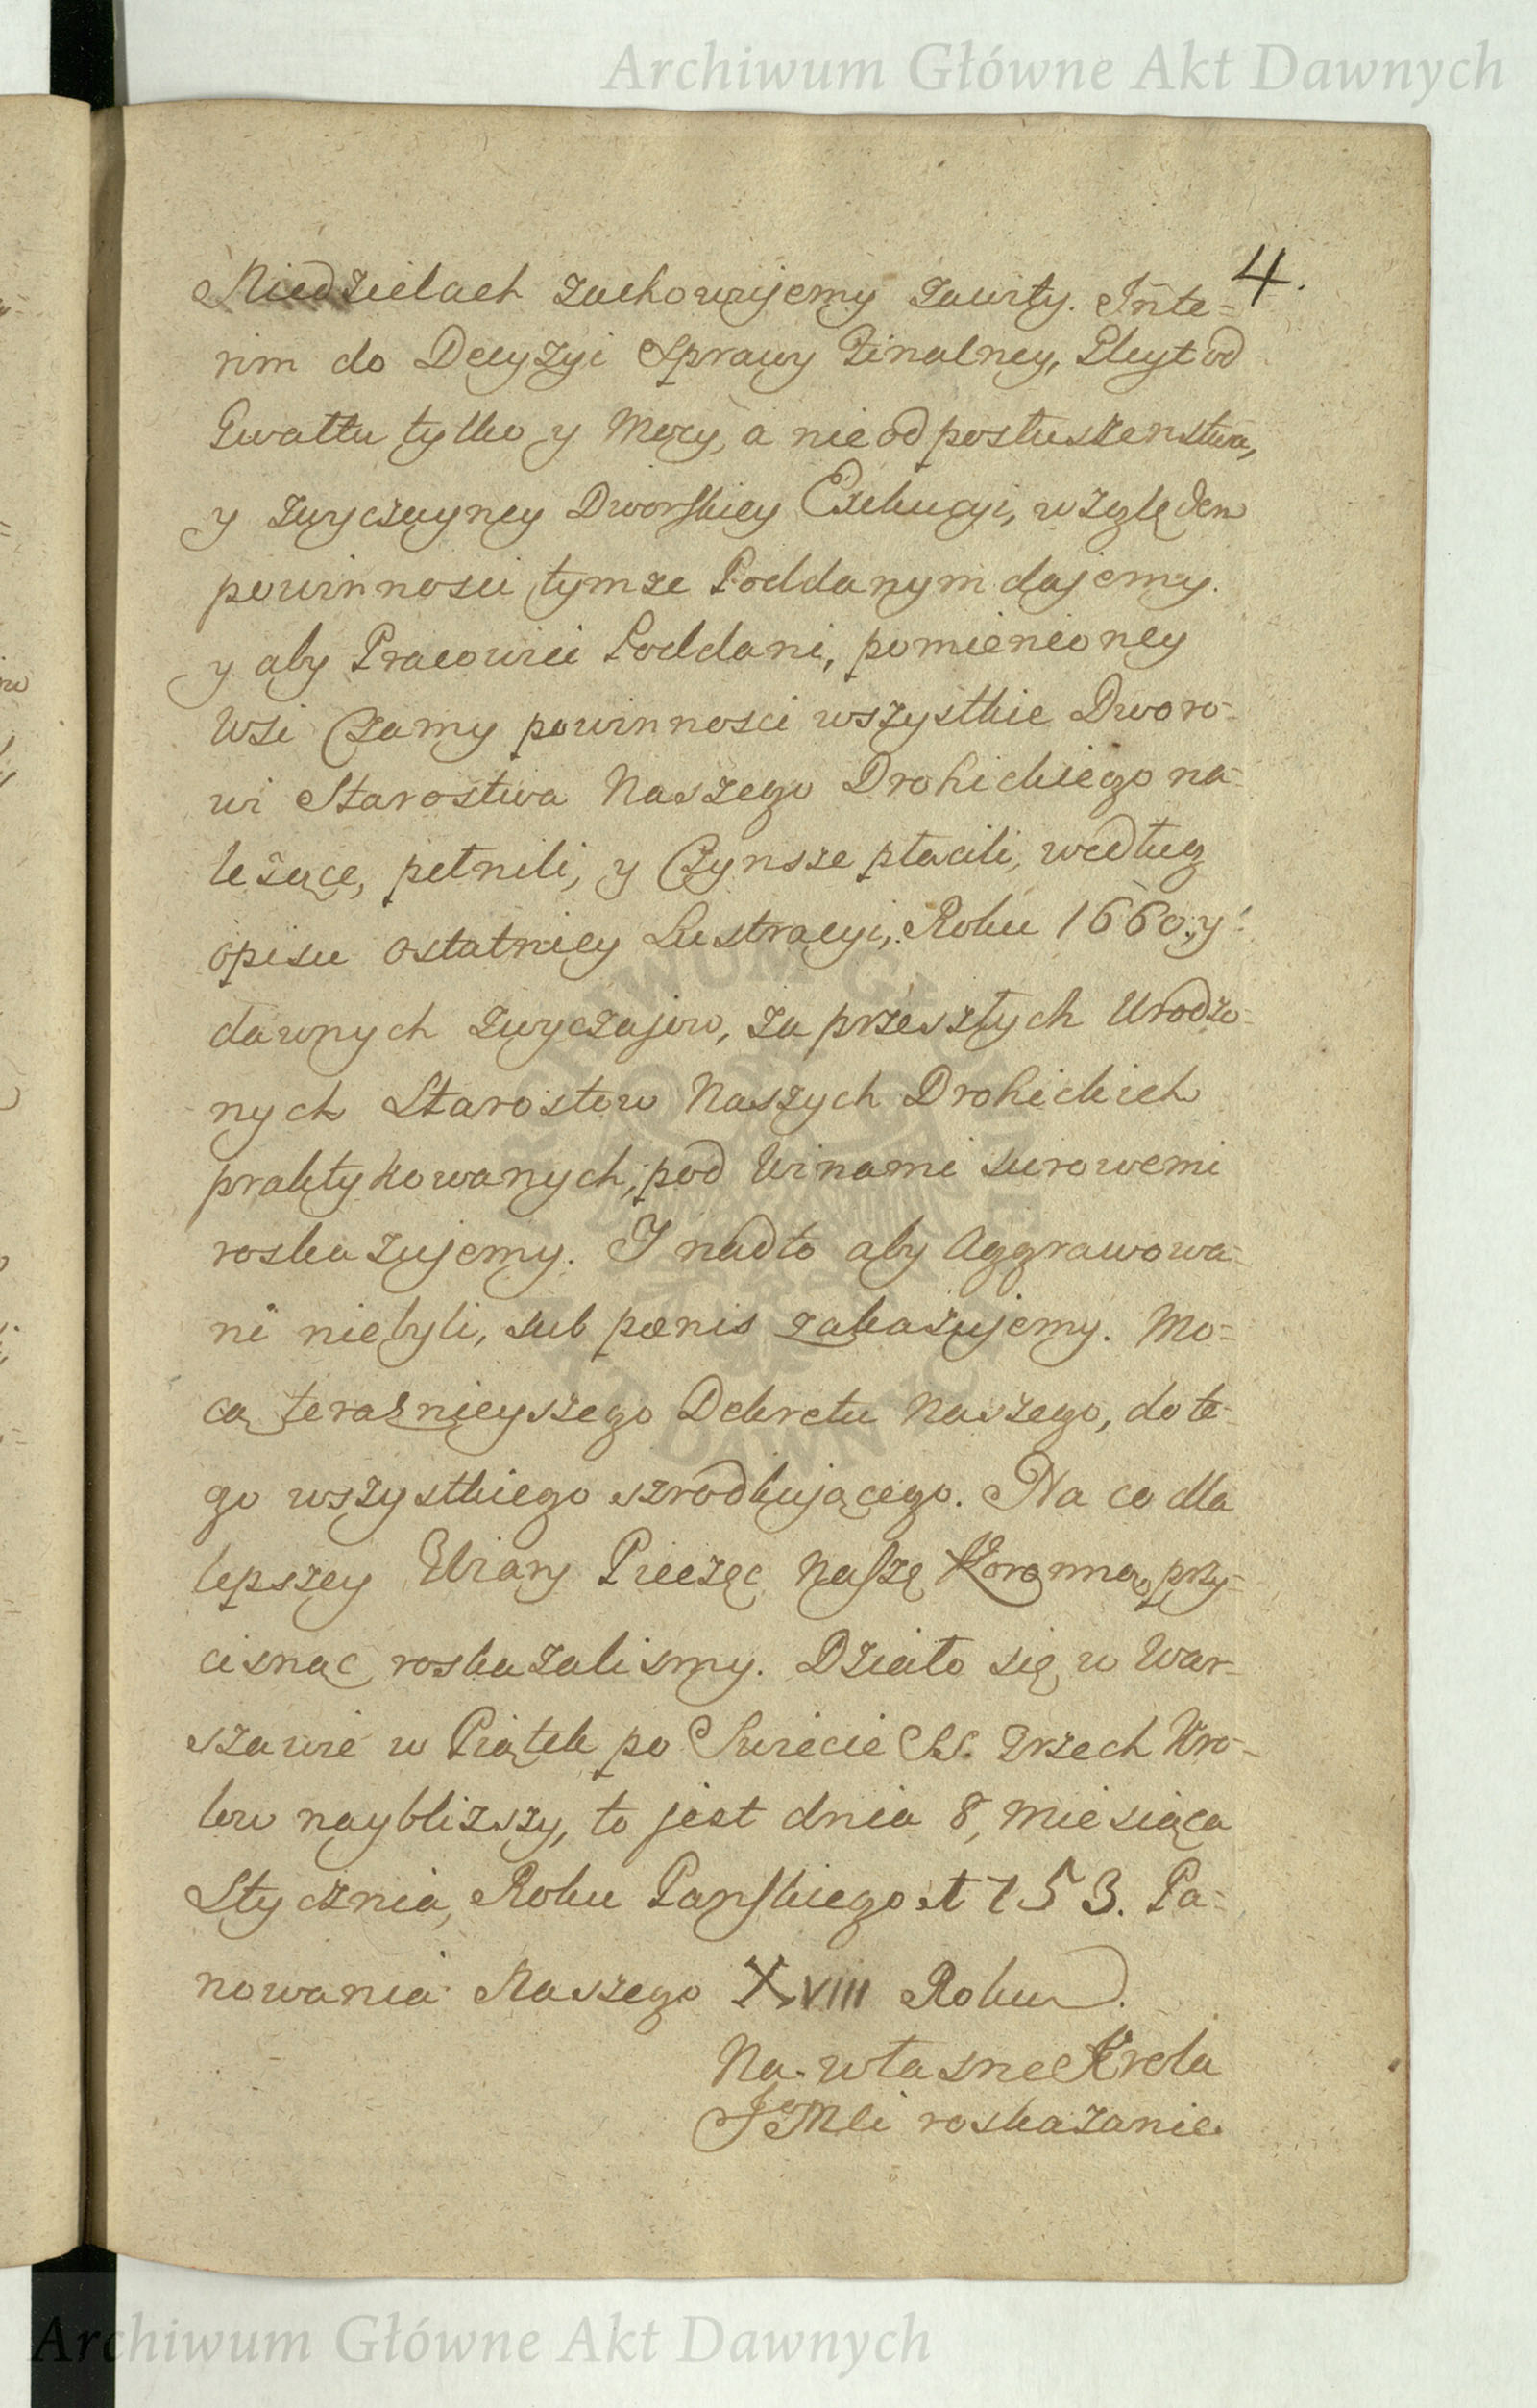 Archiwum Główne Akt Dawnych
4.
Niedzielach zachowujemy zawity. Inte=
rim do Decyzyi Sprawy Finalney, Gleyt od
Gwałtu tylko y Mocy, a nie od posłuszenstwa,
y zwyczayney Dworskiey Exekucyi, względem
powinnosci tymze Poddanym dajemy.
y aby Pracowici Poddani, pomienioney
Wsi Czarny powinnosci wszystkie Dworo-
wi Starostwa Naszego Drohickiego na-
leżące, pełnili, y Czynsze płacili, według
opisu ostatniey Lustracyi, Roku 1660. y
dawnych zwyczajow, za przeszłych Urodzo-
nych Starostow Naszych Drohickich
praktykowanych, pod Winami surowemi
roskazujemy. I nadto aby Aggrawowa-
ni niebyli, sub pœnis zakazujemy. Mo=
cą teraznieyszego Dekretu Naszego, do te-
go wszystkiego szrodkującego. Na co dla
lepszey Wiary Pieczęc Naszę Koronną przy-
cisnąc roskazalismy. Działo się w War-
szawie w Piątek po Swięcie SS. Trzech Kro-
low nayblizszy, to jest dnia 8, Miesiąca
Stycznia, Roku Panskiego 1753. Pa-
nowania Naszego XVIII Roku.
Na własne Krola
JeMci roskazanie.
Archiwum Główne Akt Dawnych